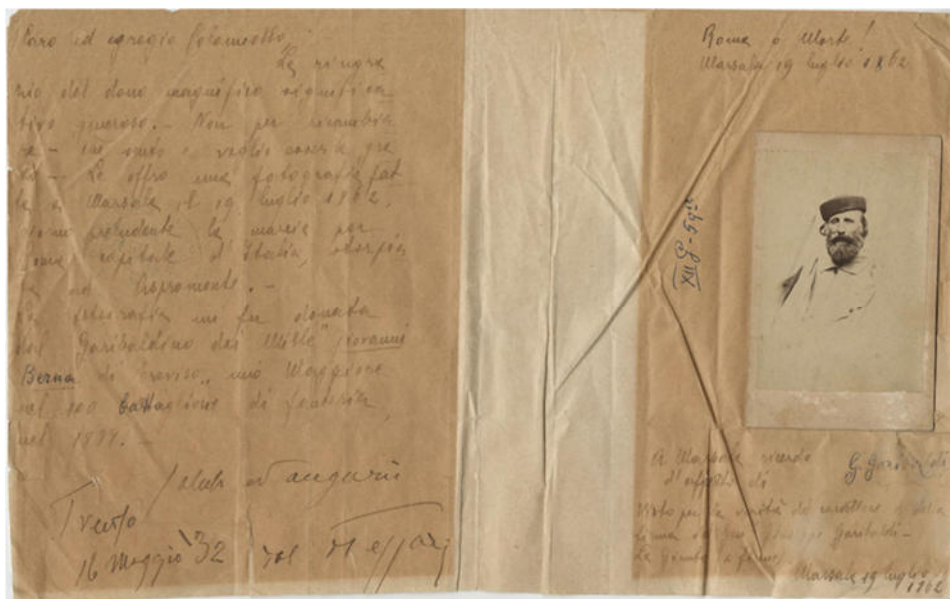 Caro ed egregio
La ringra
zio del dono magnifico significa
tivo generoso. - Non per ricambia
re - che sono e voglio esserle gra
to - Le offro una fotografia fat
ta a Marsala il 19 luglio 1862,
la marcia per
Roma capitale d'Italia,
Aspromonte. -
La fotografia mi fu donata
dal Garibaldino dei Mille Giovanni
Berna di Treviso, mio Maggiore
nel 100 battaglione di fanteria,
nel 1877. -
Saluti ed auguri
Trento
16 Maggio '32 dal
Roma o Morte!
Marsala 19 luglio 1862
XII G-59
A Marsala ricordo
d'affetto di
G. Garibaldi
Visto per la verità del carattere e della
firma del Giuseppe Garibaldi -
Marsala 19 luglio
1862